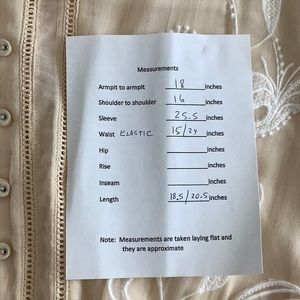 Measurements
Armpit to armpit 18 inches
Shoulder to shoulder 16 inches
Sleeve 25.5 inches
Waist ELASTIC 15/24 inches
Hip inches
Rise inches
Inseam inches
Length 18.5/20.5 inches
Note: Measurements are taken laying flat and
they are approximate